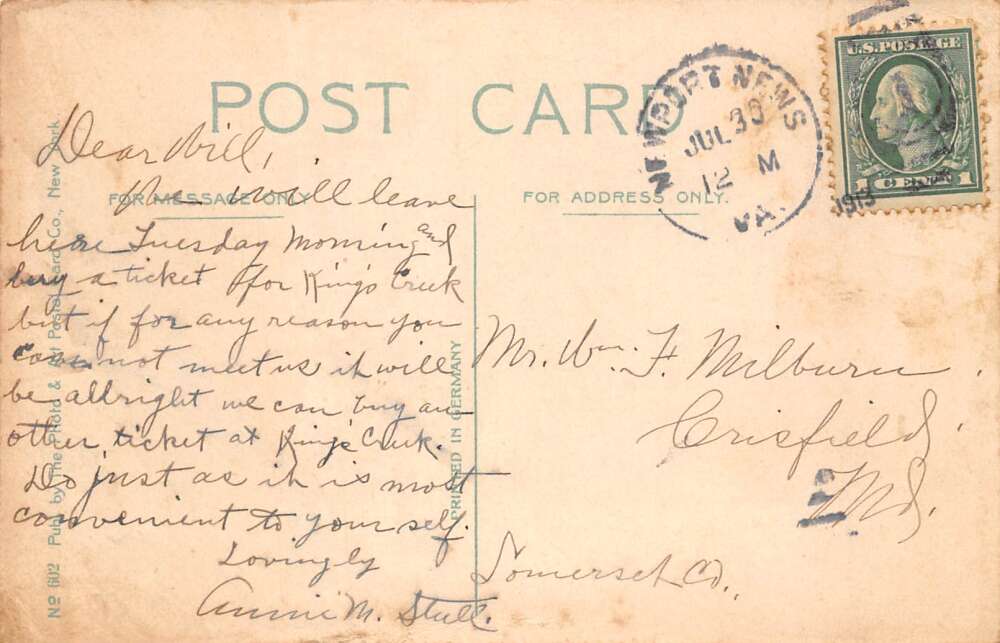 POST CARD
FOR MESSAGE ONLY
FOR ADDRESS ONLY.
U.S. POSTAGE
1 CENT 1
NEWPORT NEWS
JUL 30
12 M
VA.
1913
Dear Will,
We will leave
here Tuesday Morning and
buy a ticket for King's Creek
but if for any reason you
can not meet us it will
be allright we can buy an
other ticket at King's Creek.
Do just as it is most
convenient to your self.
Lovingly
Annie M. Stull.
Mr. Wm. F. Milburn
Crisfield,
Md.
Somerset Co.,
PRINTED IN GERMANY
No 602 Publ. by The Photo & Art Postal Card Co., New York.